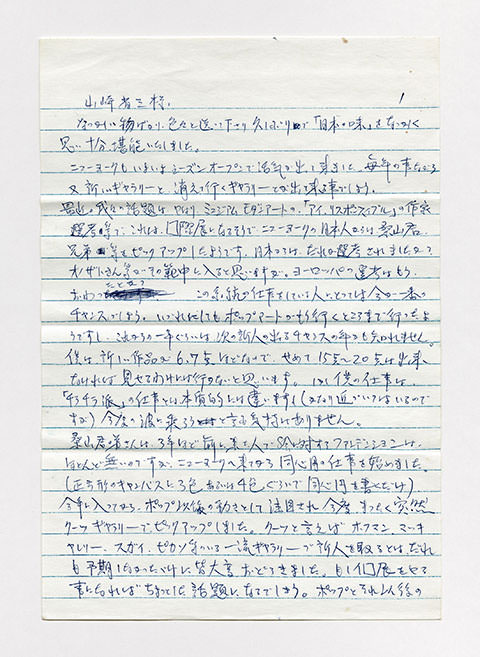 山崎省三様、 1
なつかしい物ばかり、色々と送って下さり久しぶりで「日本の味」をなつかしく
思い十分堪能いたしました。
ニューヨークもいよいよシーズンオープンで活気が出て来ました。毎年の事ながら
又新しいギャラリーと消えて行くギャラリーとが出て来る事でしょう。
最近の我々の話題はやはり、ミュジアム モダンアートの、「アイ、リスポンスィブル」の作家
選考等で、これは、国際展になるそうでニューヨークの日本人からは桑山君、
兄弟 等をピックアップしたようです、日本からは、だれが選考されましたか?
オノサトさん等かその範中に入ると思いますが。ヨーロッパの選考はもう、
おわったとか?
この系統の仕事をしている人にとっては今が一番の
チャンスでしょう。いずれにしてもポップアートがもう行くところまで行ったよ
うですし、これから一年ぐらいは次の新人の出るチャンスの年かも知れません。
僕は新しい作品が6.7点ほどなので、せめて15点〜20点は出来
なければ見せるわけには行かないと思います。 僕の仕事は、
「チラチラ派」の仕事とは本質的には違いますし(かなり近いではいるので
すが)今度の波に乗ろうと言う気持はありません。
桑山君達さんは、3年ほど前に来た人で 対するアテンションは、
ほとんど無いのですが、ニューヨークへ来てから同心円の仕事を始めました。
(正方形のキャンバスに3色あるいは4色ぐらいで同心円を書くだけ)
今年に入ってから、ポップ以後の動きとして注目され今度、まったく突然
クーツギャラリーでピックアップしました。クーツと言えばホフマン、マザ
ウェル、スガイ、ピカソ等のいる一流ギャラリーで新人を取るとは、だれ
も予期しなかっただけに皆大変おどろきました。もし個展をやる
事になればちょっとした話題になるでしょう。ポップとそれ以後の